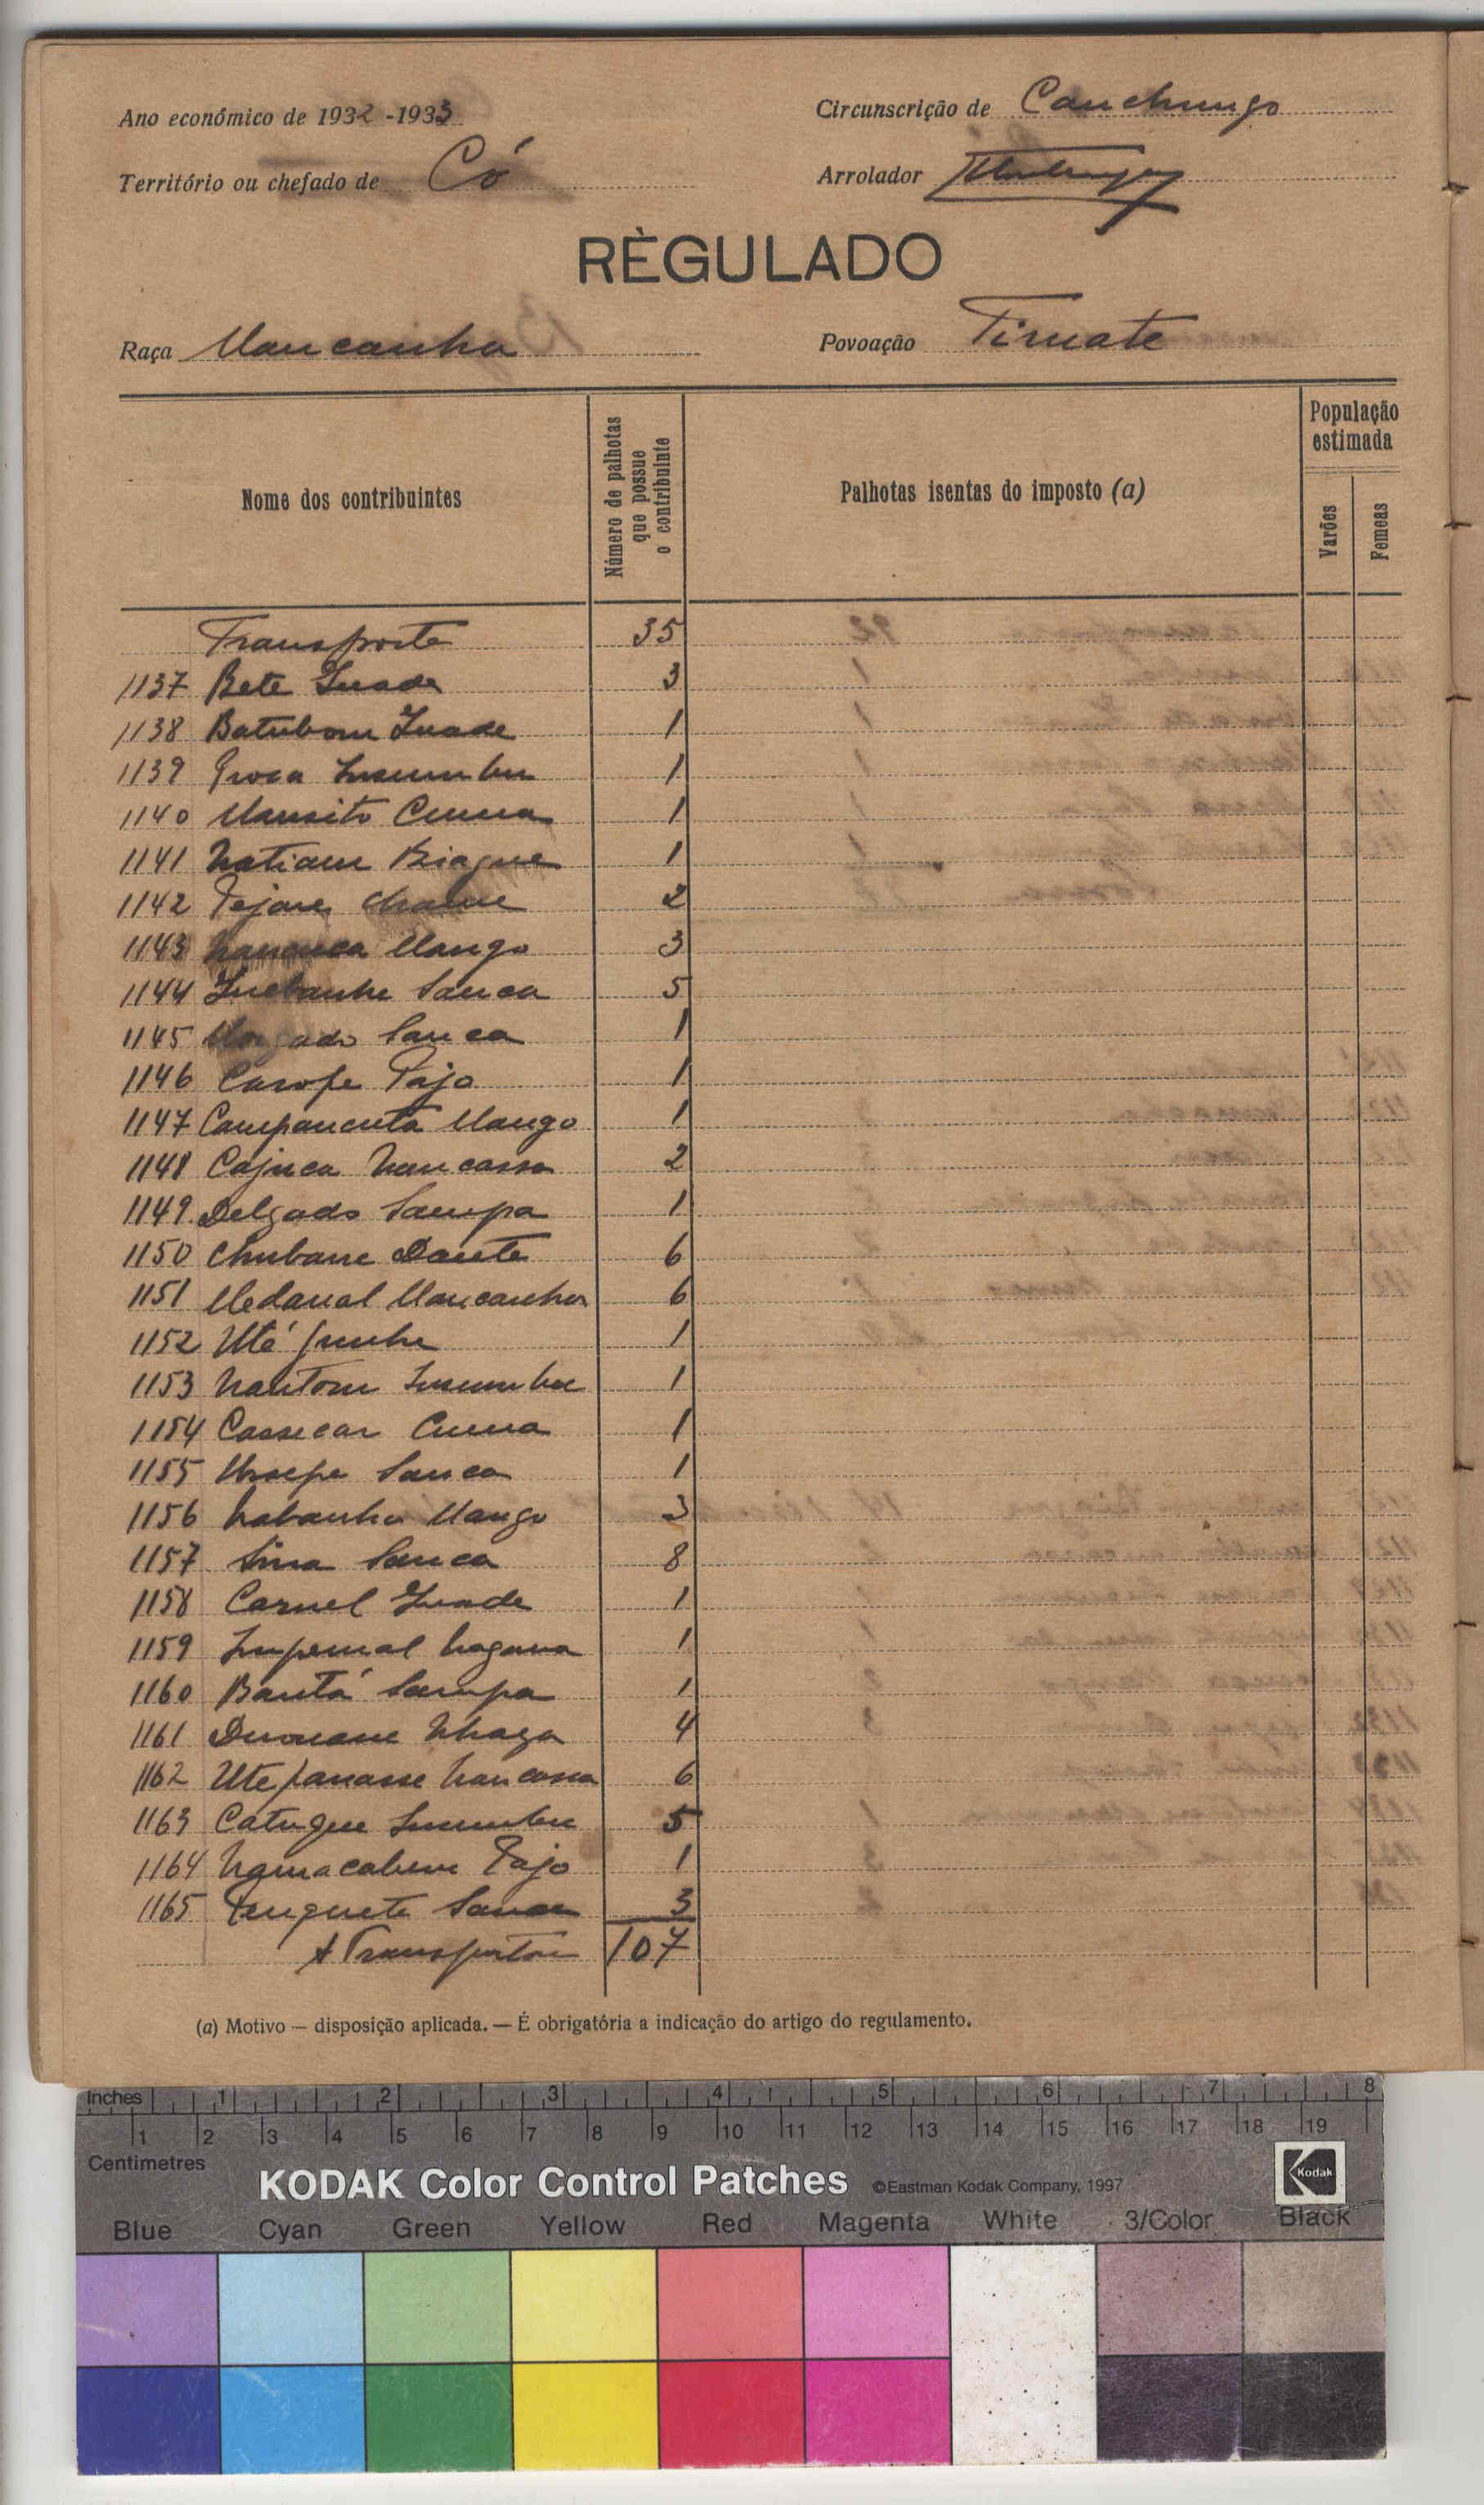 Ano económico de 1932-1933
Circunscrição de Canchungo
Território ou chefado de Có
Arrolador
RÈGULADO
Raça Mancanha
Povoação Timate
Nome dos contribuintes
Número de palhotas que possue o contribuinte
Palhotas isentas do imposto (a)
População estimada
Varões
Femeas
Transporte 35
1137 Bete Iuade 3
1138 Batubom Iuade 1
1139 Groca Insumbu 1
1140 Mansito Cuma 1
1141 Natiam Biague 1
1142 Pejane Chame 2
1143 Nanouca Mango 3
1144 Iuebanhe Sanca 5
1145 Morgado Sanca 1
1146 Carofe Pajo 1
1147 Campancuta Mango 1
1148 Cajuca Nancassa 2
1149 Delgado Sampa 1
1150 Chubane Dante 6
1151 Medanal Mancanha 6
1152 Uté 1
1153 Nantom Insumbu 1
1154 Cassecar Cuma 1
1155 Sanca 1
1156 Nabanha Mango 3
1157 Sina Sanca 8
1158 Carnel Iuade 1
1159 Impernal Nagana 1
1160 Bantá Sampa 1
1161 Nhaga 4
1162 Utepanasse Nancassa 6
1163 Catuque Insumbu 5
1164 Namacabum Pajo 1
1165 Funquete Sanca 3
A Transportar 107
(a) Motivo — disposição aplicada. — É obrigatória a indicação do artigo do regulamento.
Inches 1 2 3 4 5 6 7 8
1 2 3 4 5 6 7 8 9 10 11 12 13 14 15 16 17 18 19
Centimetres
KODAK Color Control Patches ©Eastman Kodak Company, 1997 Kodak
Blue Cyan Green Yellow Red Magenta White 3/Color Black